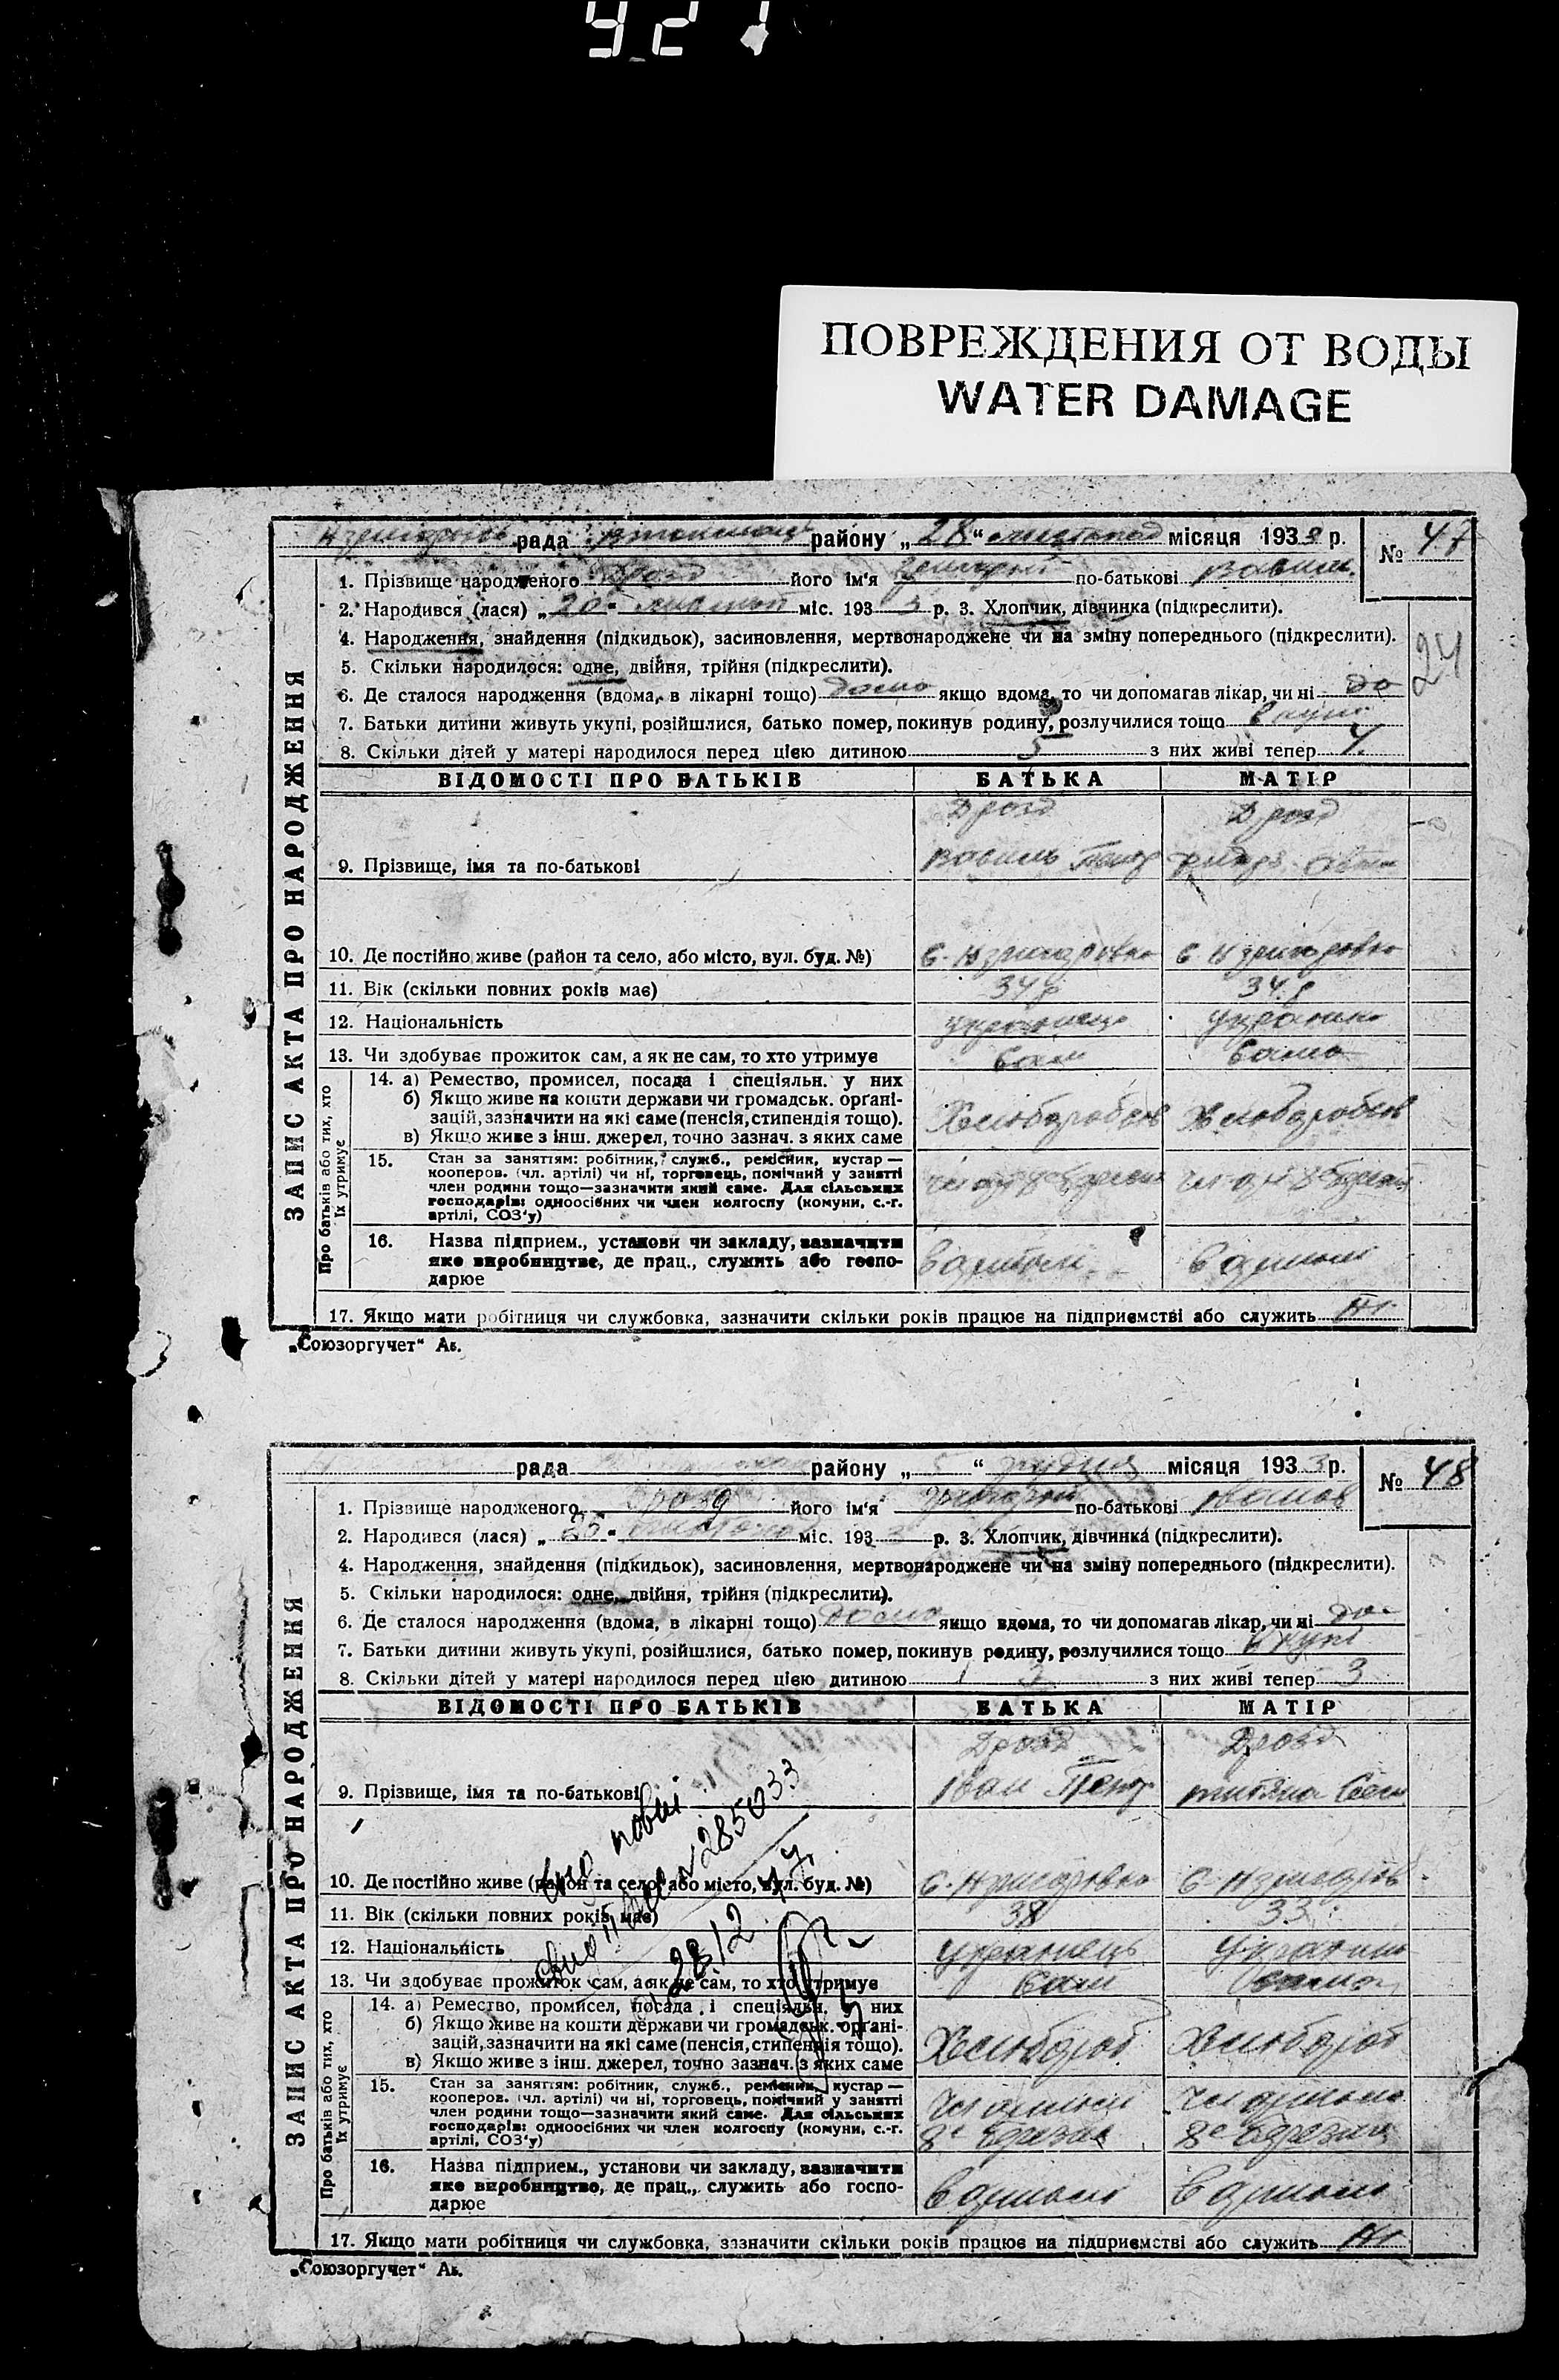 ПОВРЕЖДЕНИЯ ОТ ВОДЫ
WATER DAMAGE
рада району „28“ листопад місяця 193 р. № 47
1. Прізвище народженого Дрозд його ім'я по-батькові Василь.
2. Народився (лася) „20“ листоп міс. 1933 р. 3. Хлопчик, дівчинка (підкреслити).
24
4. Народження, знайдення (підкидьок), засиновлення, мертвонароджене чи на зміну попереднього (підкреслити).
5. Скільки народилося: одне, двійня, трійня (підкреслити).
6. Де сталося народження (вдома, в лікарні тощо) дома якщо вдома, то чи допомагав лікар, чи ні
7. Батьки дитини живуть укупі, розійшлися, батько помер, покинув родину, розлучилися тощо вкупі
8. Скільки дітей у матері народилося перед цією дитиною 5 з них живі тепер 4.
ЗАПИС АКТА ПРО НАРОДЖЕННЯ
ВІДОМОСТІ ПРО БАТЬКІВ БАТЬКА МАТІР
Дрозд Дрозд
9. Прізвище, імя та по-батькові Василь Петр
10. Де постійно живе (район та село, або місто, вул. буд. №) с. с.
11. Вік (скільки повних років має) 34 р 34 р
12. Національність українець українка
13. Чи здобуває прожиток сам, а як не сам, то хто утримує сам сама
Про батьків або тих, хто їх утримує
14. а) Ремество, промисел, посада і спеціяльн. у них
б) Якщо живе на кошти держави чи громадськ. органі-
зацій, зазначити на які саме (пенсія, стипендія тощо).
в) Якщо живе з інш. джерел, точно зазнач. з яких саме
Хлібороб Хлібороб
15. Стан за заняттям: робітник, служб., ремісник, кустар —
кооперов. (чл. артілі) чи ні, торговець, помічний у занятті
член родини тощо—зазначити який саме. Для сільських
господарів: одноосібних чи член колгоспу (комуни, с.-г.
артілі, СОЗ'у)
16. Назва підприєм., установи чи закладу, зазначити
яке виробництве, де прац., служить або госпо-
дарює
В артілі В артілі
17. Якщо мати робітниця чи службовка, зазначити скільки років працює на підприємстві або служить Ні
„Союзоргучет“ Аб.
рада району „ “ грудня місяця 1933 р. № 48
1. Прізвище народженого Дрозд його ім'я Григорій по-батькові Іванов
2. Народився (лася) „25“ листопад міс. 193 р. 3. Хлопчик, дівчинка (підкреслити).
4. Народження, знайдення (підкидьок), засиновлення, мертвонароджене чи на зміну попереднього (підкреслити).
5. Скільки народилося: одне, двійня, трійня (підкреслити).
6. Де сталося народження (вдома, в лікарні тощо) дома якщо вдома, то чи допомагав лікар, чи ні
7. Батьки дитини живуть укупі, розійшлися, батько помер, покинув родину, розлучилися тощо вкупі
8. Скільки дітей у матері народилося перед цією дитиною 3 з них живі тепер 3
ЗАПИС АКТА ПРО НАРОДЖЕННЯ
ВІДОМОСТІ ПРО БАТЬКІВ БАТЬКА МАТІР
Дрозд Дрозд
9. Прізвище, імя та по-батькові Іван Петр
285033
28/2
10. Де постійно живе (район та село, або місто, вул. буд. №) с. с.
11. Вік (скільки повних років має) 38 33
12. Національність українець українка
13. Чи здобуває прожиток сам, а як не сам, то хто утримує сам сама
Про батьків або тих, хто їх утримує
14. а) Ремество, промисел, посада і спеціяльн. у них
б) Якщо живе на кошти держави чи громадськ. органі-
зацій, зазначити на які саме (пенсія, стипендія тощо).
в) Якщо живе з інш. джерел, точно зазнач. з яких саме
Хлібороб Хлібороб
15. Стан за заняттям: робітник, служб., ремісник, кустар —
кооперов. (чл. артілі) чи ні, торговець, помічний у занятті
член родини тощо—зазначити який саме. Для сільських
господарів: одноосібних чи член колгоспу (комуни, с.-г.
артілі, СОЗ'у)
Чл артілі Чл артілі
8е березня 8е березня
16. Назва підприєм., установи чи закладу, зазначити
яке виробництво, де прац., служить або госпо-
дарює
В артілі В артілі
17. Якщо мати робітниця чи службовка, зазначити скільки років працює на підприємстві або служить Ні
„Союзоргучет“ Аб.